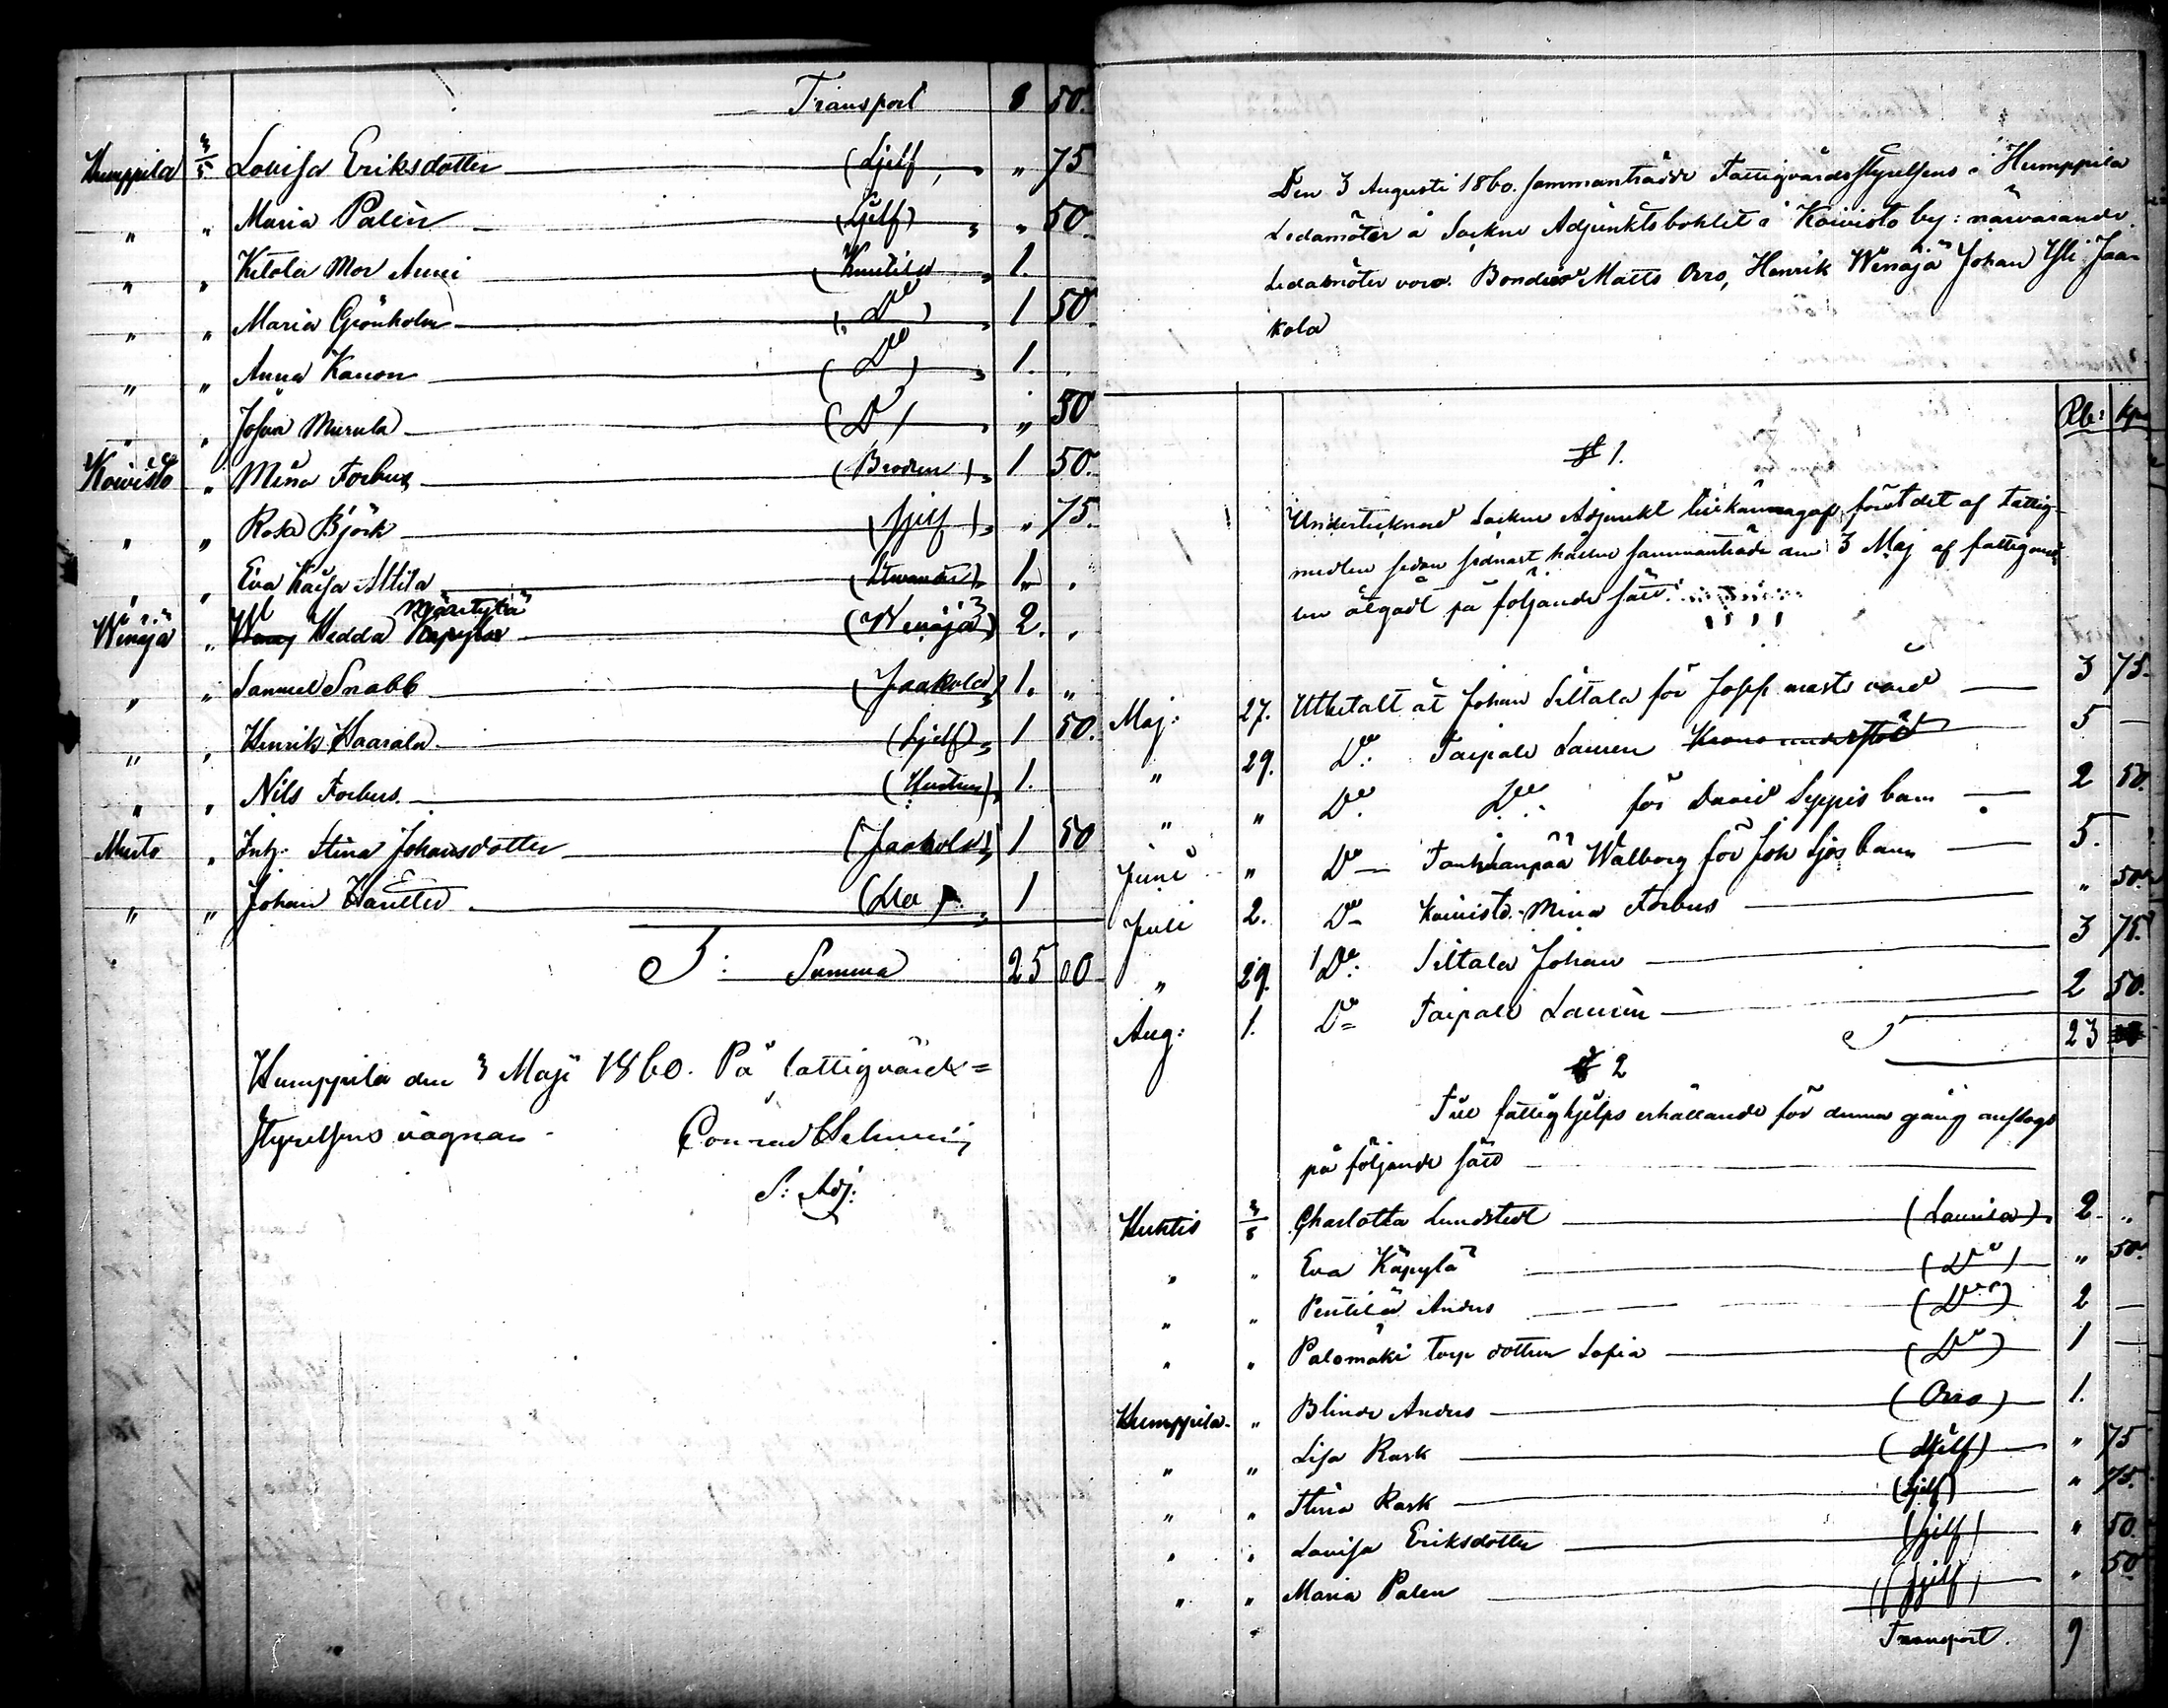 Transport 8 50.
Humppila 3/5 Lovisa Eriksdotter (Sjelf) „ 75
„ „ Maria Palin (Sjelf) „ 50
„ „ Ketola Mor Anni (Knutila) 1.
„ „ Maria Grönholm (Do) 1 50
„ „ Anna Kanon (Do) 1.
„ „ Josua Murula (Do) „ 50
Koivisto „ Mina Forbus (Brodren) 1 50.
„ „ Rosa Björk (sjelf) „ 75.
„ „ Eva Kaisa Attila 1 „
Wenäjä „ Hedda Mäntylä (Wenäjä) 2. „
„ „ Samuel Snabb (Jaakola) 1. „
„ „ Henrik Haarala (Sjelf) 1 50.
„ „ Nils Forbus. (Hustrun) 1.
Murto „ Inh. Stina Johansdotter (Jaakola) 1 50
„ „ Johan (Dito) 1
S: Summa 25 00
Humppila den 3 Maji 1860. På fattigvårds=
styrelsens vägnar Conrad
S: Adj:
Den 3 Augusti 1860. sammanträdde Fattigvårdsstyrelsens i Humppila
Ledamöter å Sockne Adjunktsbohlet i Koivisto by: närvarande
Ledamöter voro. Bonden Matts Orro, Henrik Wenäjä Johan Yli-Jaa-
kola
Rb: kop
§ 1.
Undertecknad Sockne Adjunkt tillkännagaf, först det af Fattig-
medlen sedan sednast hållne sammanträde den 3 Maj af fattigmed-
len åtgådt på följande sätt:
Maj: 27. Utbetalt åt Johan Siltala för Josef vård 3 75.
„ 29. Do: Taipale Laurén Krono understöd 5 —
„ „ Do. Do. för David Seppis barn 2 50.
Juni „ Do — Walborg för Joh Sjös barn 5.
Juli 2. Do Koivisto Mina Forbus „ 50
„ 29. Do: Siltala Johan 3 75.
Aug: 1. Do= Taipale Laurén 2 50.
S 23
§ 2
Till fattighjelps erhållande för denna gång anslogs
på följande sätt
Huhtis 3/8 Charlotta Lundstedt (Laurila) 2. „
„ „ Eva Käpylä (Do) „ 50.
„ „ Penttilä Anders (Do) 2 —
„ „ Palomäki torp dottren Sofia (Do) 1 —
Humppila. „ Blinde Anders (Orro) 1.
„ „ Lisa Rask (Sjelf) „ 75
„ „ Stina Rask (Sjelf) „ 75.
„ „ Lovisa Eriksdotter (sjelf) „ 50.
„ „ Maria Palen (sjelf) „ 50
Transport. 9